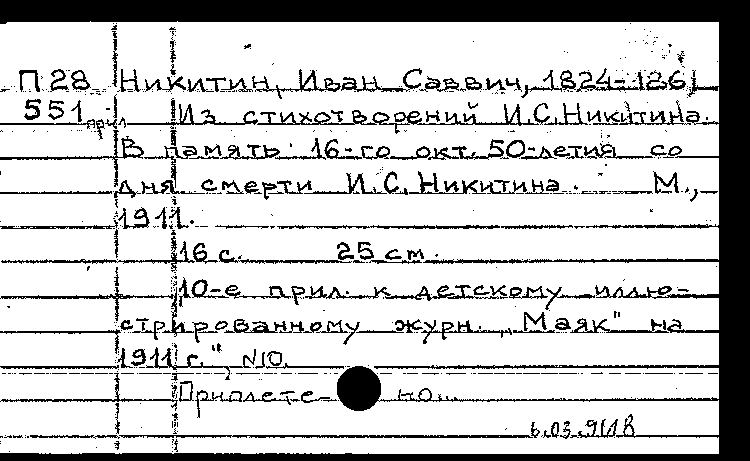 П 28 Никитин, Иван Саввич, 1824-1861
551 прил Из стихотворений И.С.Никитина.
В память 16-го окт. 50-летия со
дня смерти И.С.Никитина. М.,
1911.
16 с. 25 см.
10-е прил. к детскому иллю-
стрированному журн. „Маяк" на
1911 г.", N10.
Приплете- но...